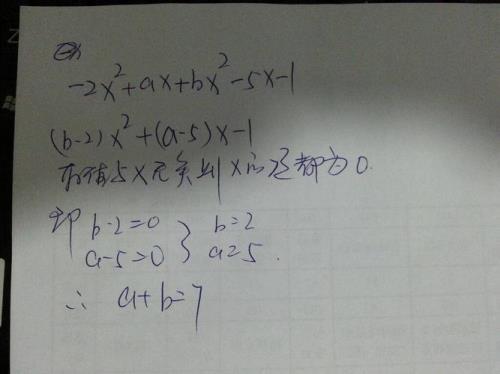 -2x²+ax+bx²-5x-1
(b-2)x²+(a-5)x-1
有值与x无关则x的还都为0.
即 b-2=0 } b=2
a-5=0 } a=5.
∴ a+b=7